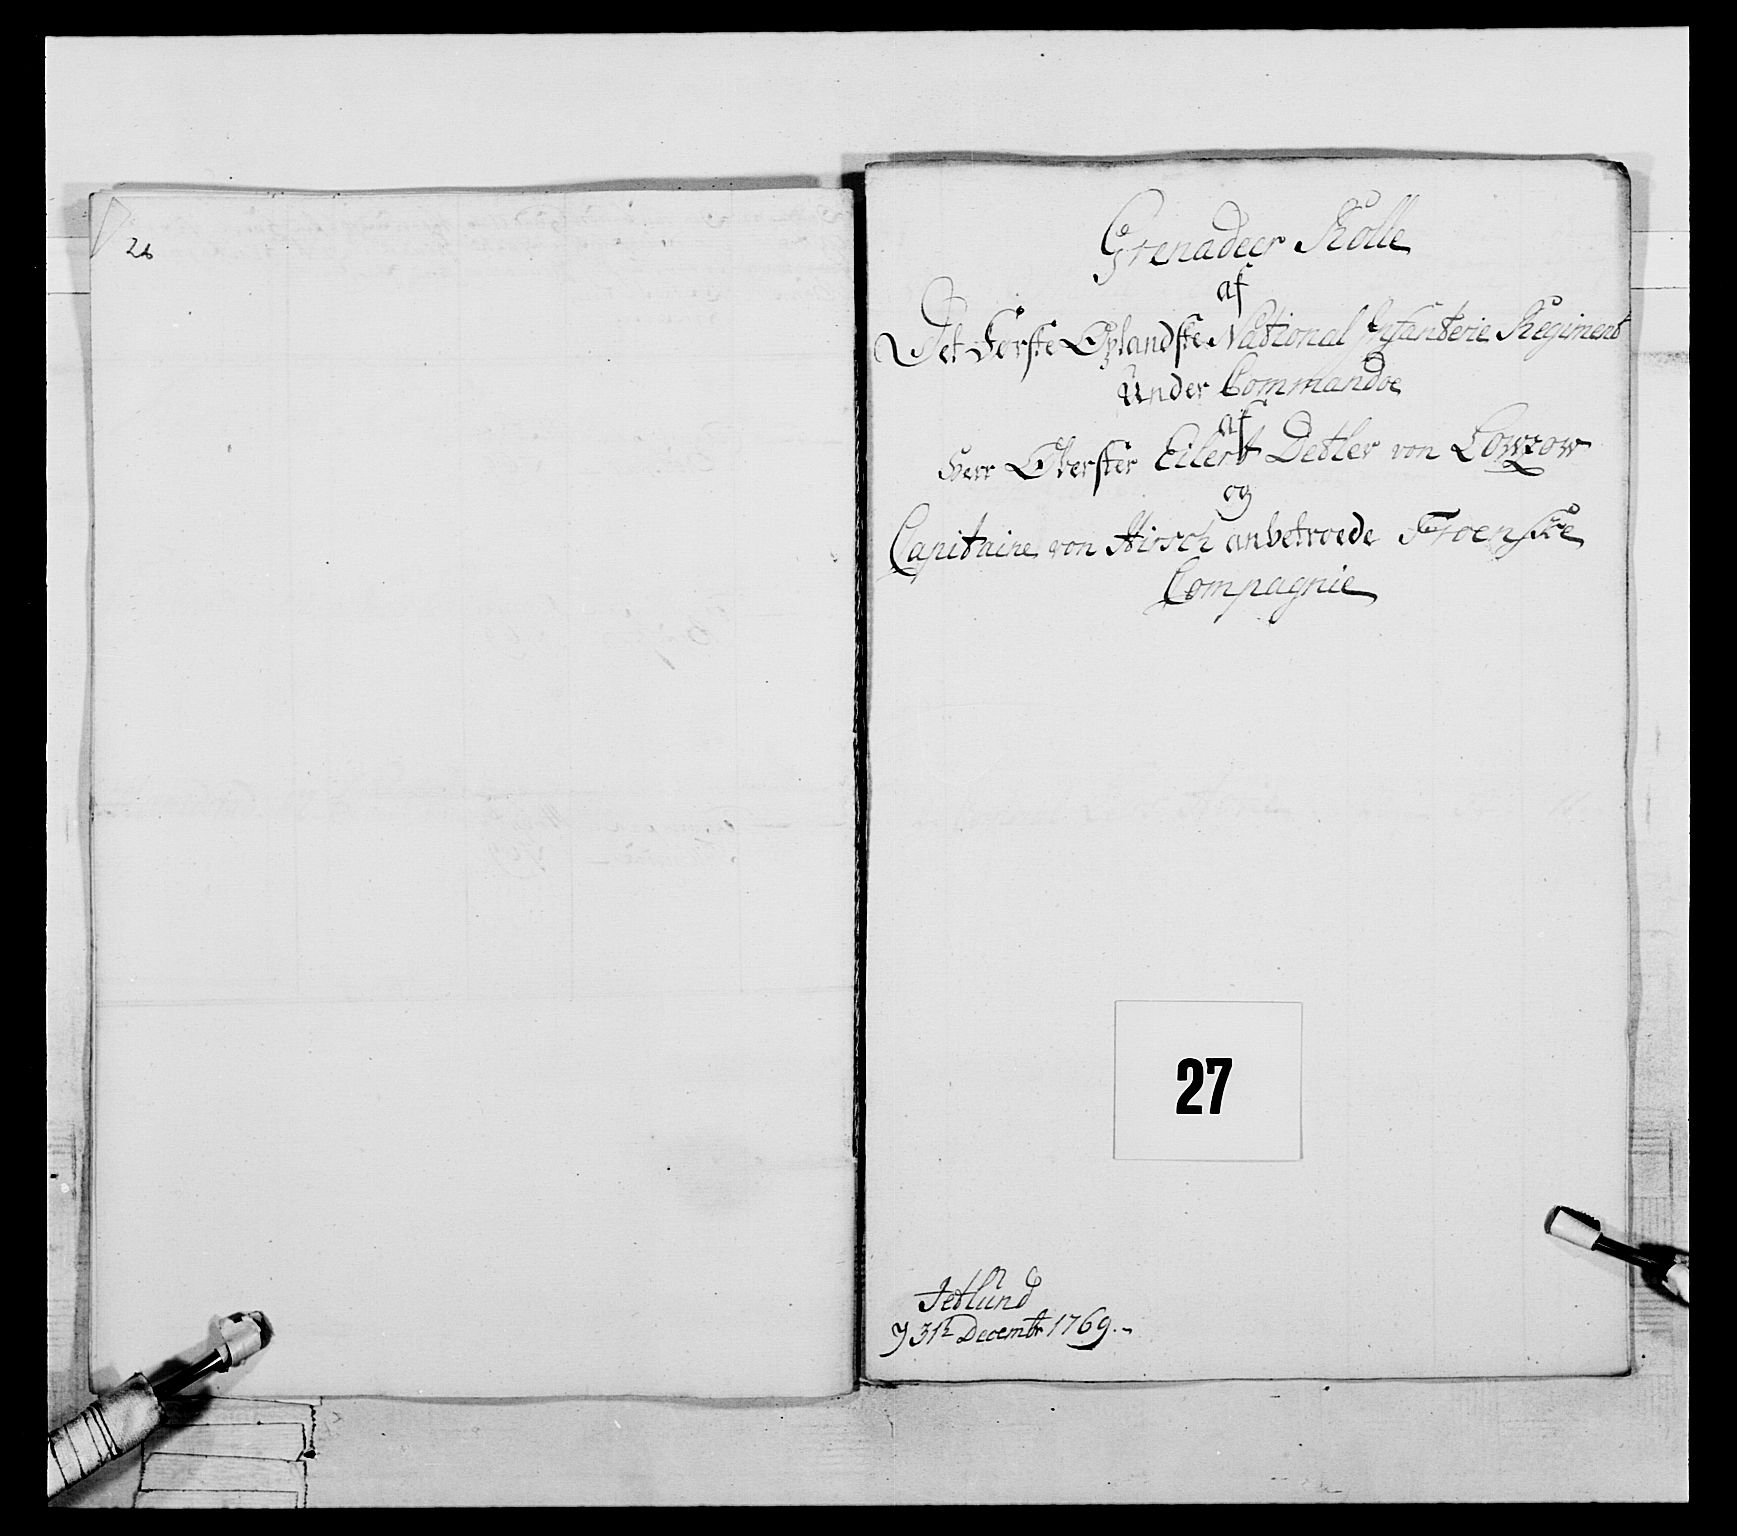 26
Grenadeer Rolle
af
Det Første Oplandske National Infanterie Regiment
Under Commandoe
af
Herr Oberster Eilert Detlev von Lowzow
og
Capitaine von Hirsch anbetroede Froenske
Compagnie
27
Jetlund
31t Decembr 1769.